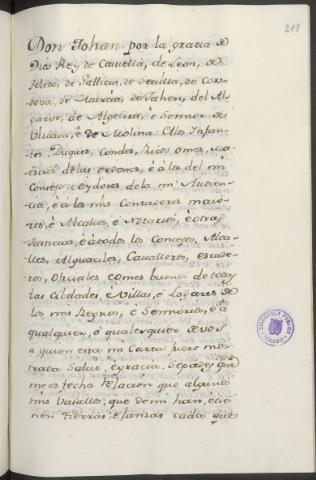 217
Don Johan por la gracia de
Dios Rey de Castiella, de Leon, de
Toledo, de Gallicia, de Sevilla, de Cor-
dova, de Murcia, de Jahen, del Al-
garve, de Algecira, è Sennor de
Vizcaia, è de Molina. A los Infan-
tes Duques, Condes, Ricos omes, Ma-
estres de las ordenes, è á los del mi
Consejo, è oydores de la mi Audien-
cia, è á los mis Contadores maio-
res, è Alcalles, è Notarios, è otras
Justicias, è á todos los Concejos, Alca-
lles, Alguaciles, Cavalleros, escude-
ros, oficiales è omes buenos de todas
las Cibdades, è Villas, è Logares de
los mis Regnos, è Sennorios, è á
qualquier, ó qualesquier de vos
a quien esta mi Carta fuere mos-
trada Salud, è gracia. Sepades que
me es fecha Relacion que algunos
mis Vasallos, que de mi han, è tie-
nen Tierras, è lanzas cada que
BIBLIOTECA PUBLICA
TOLEDO